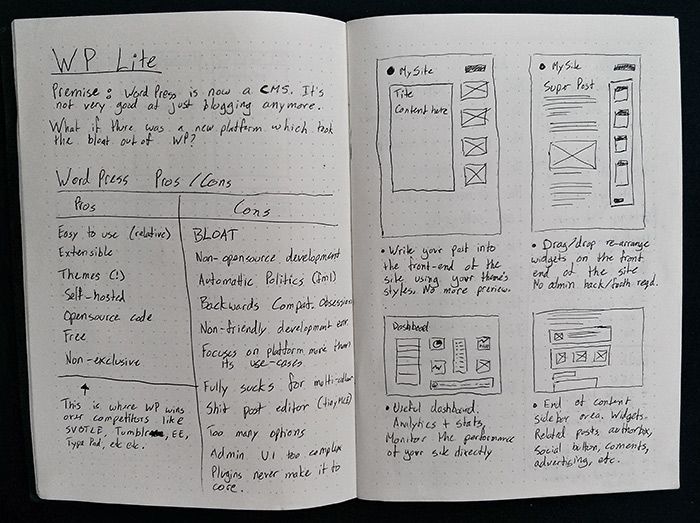 WP Lite
Premise: WordPress is now a CMS. It's
not very good at just blogging anymore.
What if there was a new platform which took
the bloat out of WP?
WordPress Pros/Cons
Pros
Easy to use (relative)
Extensible
Themes (!)
Self-hosted
Opensource code
Free
Non-exclusive
This is where WP wins
over competitors like
SVBTLE, Tumblr, EE,
TypePad, etc etc.
Cons
BLOAT
Non-opensource development
Automattic Politics (fml)
Backwards Compat. Obsession
Non-friendly development env.
Focuses on platform more than
its use-cases.
Fully sucks for multi-
Shit post editor (tinyMCE)
Too many options
Admin UI too complex
Plugins never make it to
core.
MySite
Title
Content here
• Write your post into
the front-end of the
site using your theme's
styles. No more preview.
MySite
Super Post
• Drag/drop re-arrange
widgets on the front
end of the site
No admin back/forth reqd.
Dashboard
• Useful dashboard.
Analytics + stats,
Monitor the performance
of your site directly
• End of content
sidebar area. Widgets.
Related posts, authorbox,
social button, coments,
advertising, etc.